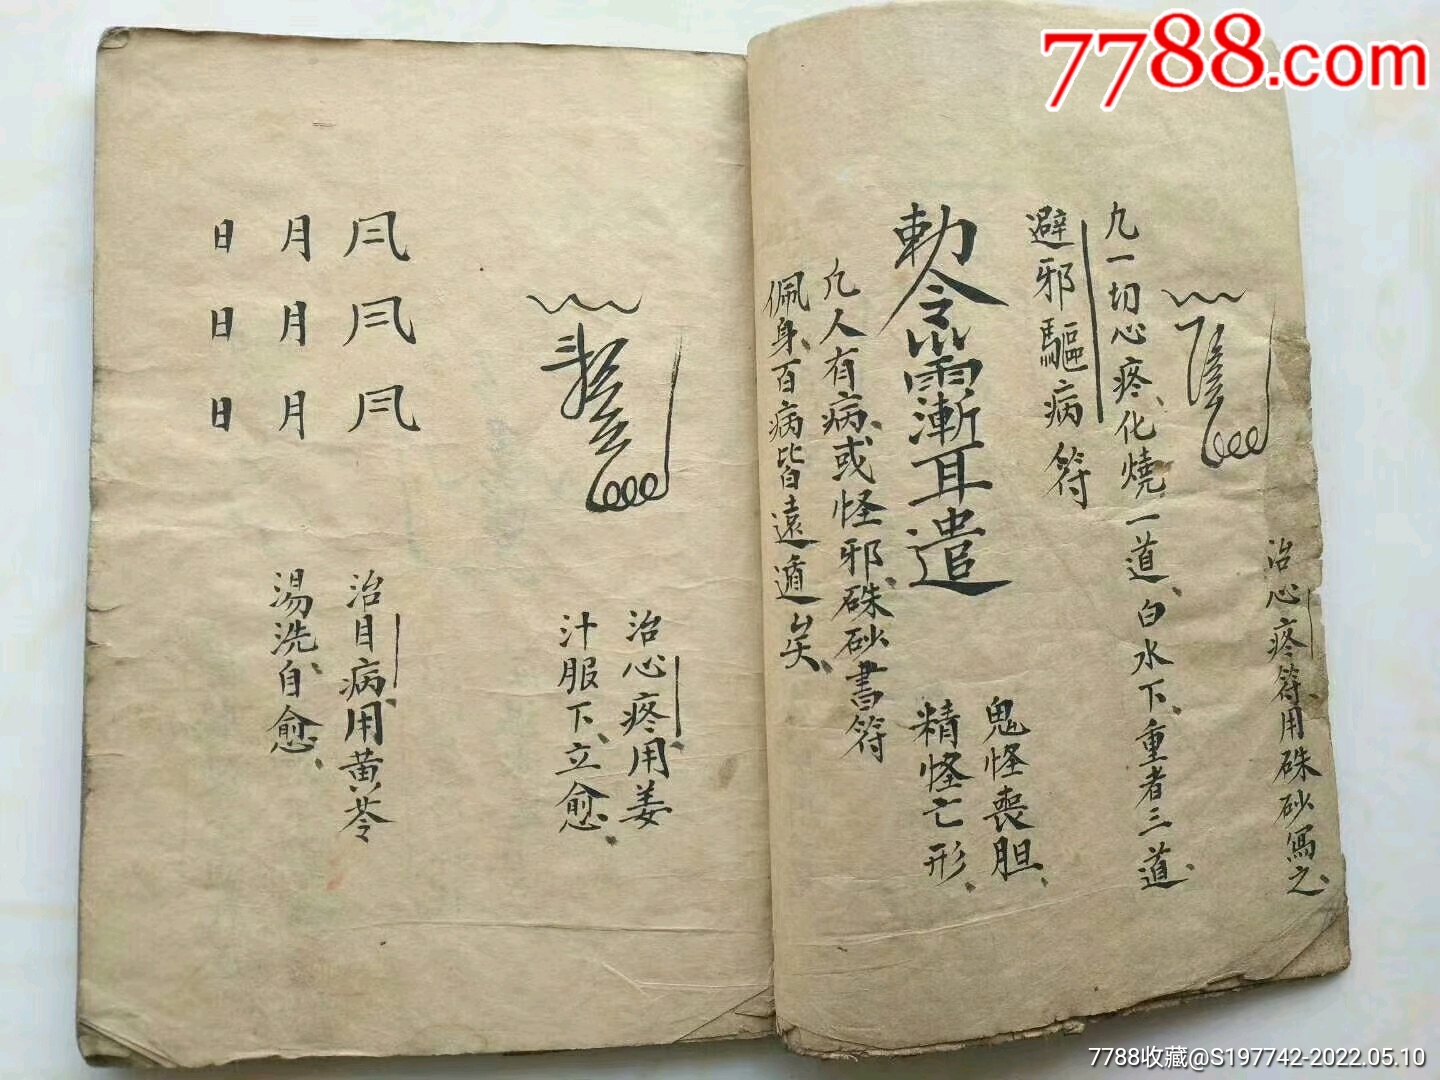 7788.com
治心疼符用硃砂寫之
凢一切心疼化燒一道白水下重者三道
避邪驅病符
勅令
漸耳遣
鬼怪喪胆
精怪亡形
凢人有病或怪邪硃砂書符
佩身百病皆遠遁矣
治心疼用姜
汁服下立愈
月月月
日日日
治目病用黄苓
湯洗自愈
7788收藏@S197742-2022.05.10